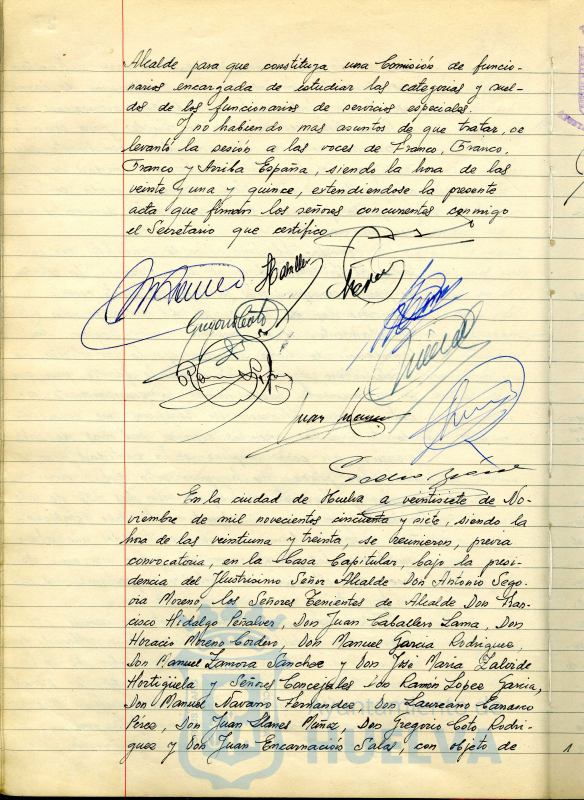 Alcalde para que constituya una Comisión de funcio-
narios encargada de estudiar las categorias y suel-
dos de los funcionarios de servicios especiales.
Y no habiendo mas asuntos de que tratar, se
levantó la sesión a las voces de Franco, Franco,
Franco y Arriba España, siendo la hora de las
veinte y una y quince, extendiendose la presente
acta que firman los señores concurrentes conmigo
el Secretario que certifico
Gregorio Coto
Ramon Lopez
Juan
Pedro
En la ciudad de Huelva a veintisiete de No-
viembre de mil novecientos cincuenta y siete, siendo la
hora de las veintiuna y treinta, se reunieron, previa
convocatoria, en la Casa Capitular, bajo la presi-
dencia del Ilustrisimo Señor Alcalde Don Antonio Sego-
via Moreno, los Señores Tenientes de Alcalde Don Fran-
cisco Hidalgo Peñalver, Don Juan Caballero Lama, Don
Horacio Moreno Cordero, Don Manuel Garcia Rodriguez,
Don Manuel Zamora Sanchez y Don José Maria Zalvide
Hortigüela y Señores Concejales Don Ramón Lopez Garcia,
Don Manuel Navarro Fernandez, Don Laureano Carrasco
Pérez, Don Juan Llanes Muñiz, Don Gregorio Coto Rodri-
guez y Don Juan Encarnación Salas, con objeto de
HUELVA